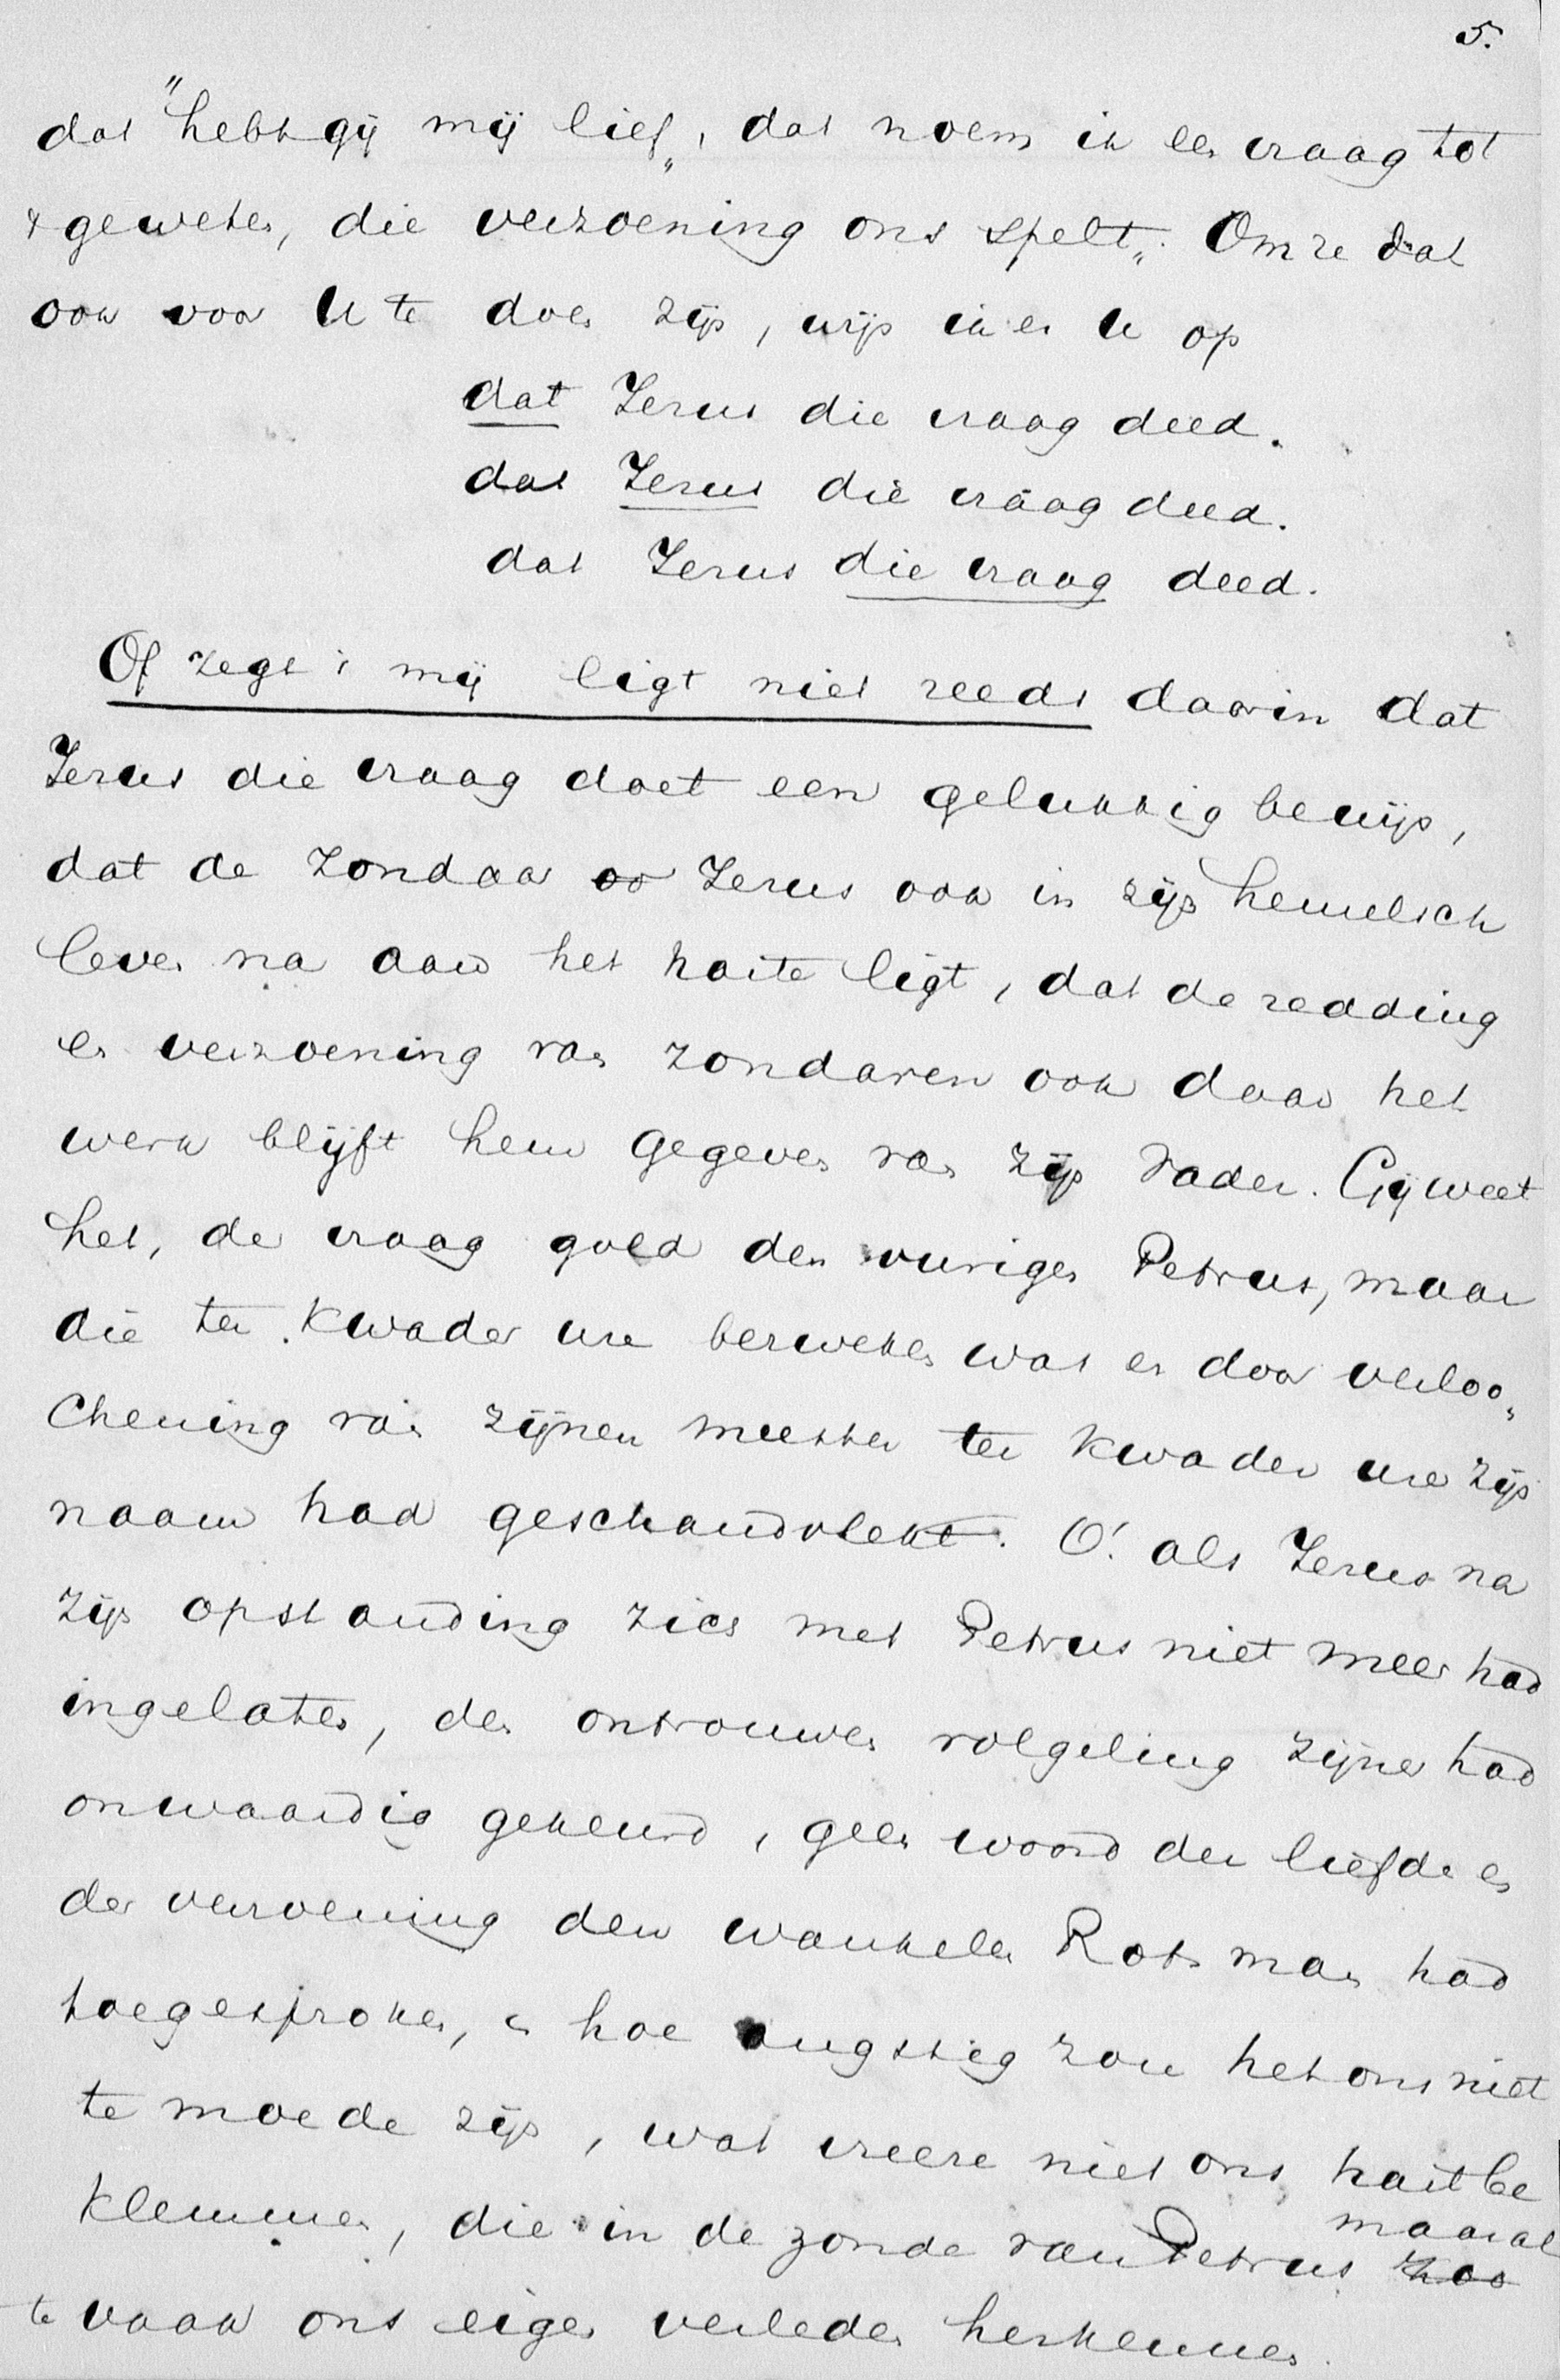 5.
dat "hebt gij mij lief„, dat noem ik een vraag tot
't geweten, die verzoening ons spelt„. Om ze dat
ook voor U te doen zijn, wijs ik er U op
dat Jezus die vraag deed.
dat Jezus die vraag deed.
dat Jezus die vraag deed.
Of zegt 't mij ligt niet reeds daarin dat
Jezus die vraag doet een gelukkig bewijs,
dat de zondaar oo Jezus ook in zijn hemelsch
leven na aan het harte ligt, dat de redding
en verzoening van zondaren ook daar het
werk blijft hem gegeven van zijn Vader. Gij weet
het, de vraag gold den vurigen Petrus, maar
die ter kwader ure bezweken was en door verloo„
chening van zijnen meester ter kwader ure zijn
naam had geschandvlekt. O! als Jezus na
zijn opstanding zich met Petrus niet meer had
ingelaten, den ontrouwen volgeling zijner had
onwaardig gekeurd, geen woord der liefde en
der verzoening den wankelen Rotsman had
toegesproken, o hoe angstig zou het ons niet
te moede zijn, wat vreeze niet ons hart be
klemmen, die in de zonde van Petrus zoo maar al
te vaak ons eigen verleden herkennen.